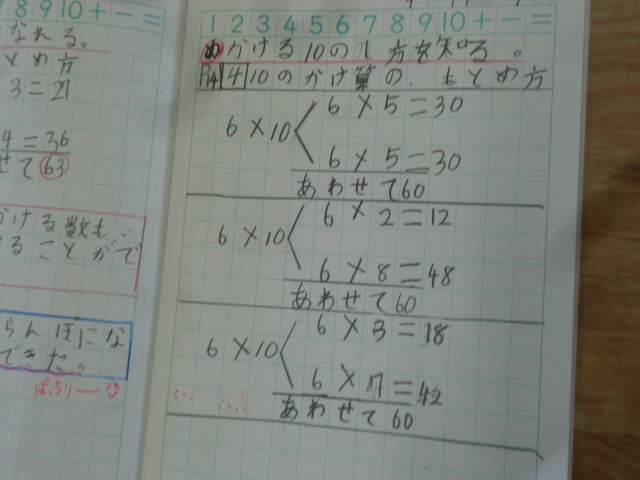 8 9 10 + − =
なれる。
とめ方
3=21
4=36
せて63
かける数も
ることがで
らんぼにな
できた。
1 2 3 4 5 6 7 8 9 10 + − =
めかける10のし方を知る。
P14 4 10のかけ算の、もとめ方
6×5=30
6×10
6×5=30
あわせて60
6×2=12
6×10
6×8=48
あわせて60
6×3=18
6×10
6×7=42
あわせて60